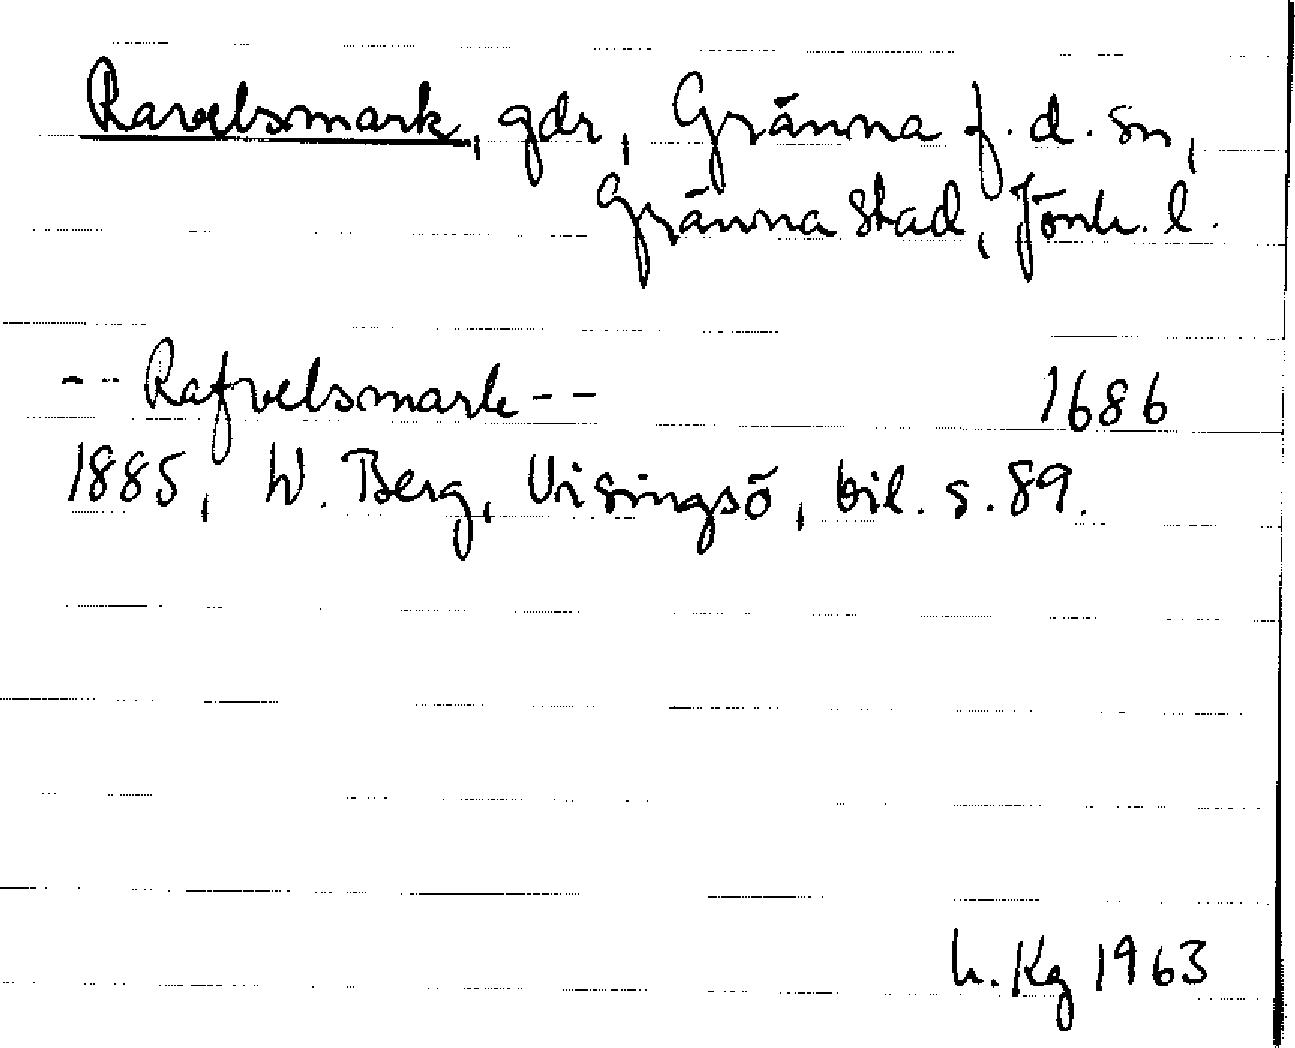 Ravelsmark, gdr, Gränna f. d. sn,
Gränna stad, Jönk. l.
-- Rafvelsmark -- 1686
1885, W. Berg, Visingsö, bil. s. 89.
h. Kg 1963